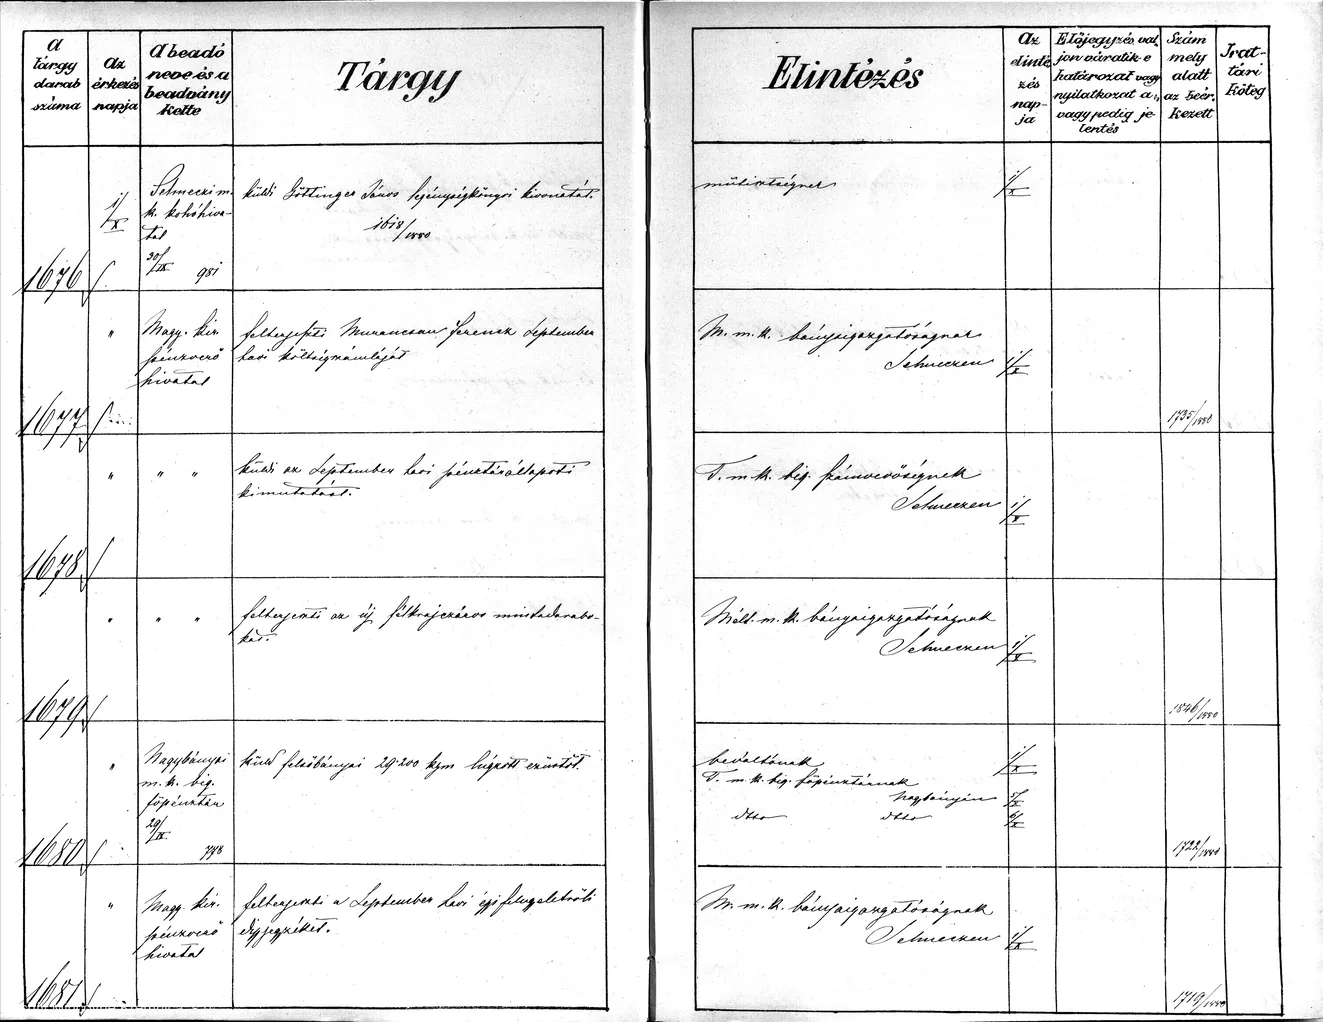 A tárgy darab száma
Az érkezés napja
A beadó neve és a beadvány kelte
Tárgy
Elintézés
Az elintézés napja
Előjegyzés, valjon váratik-e határozat vagy nyilatkozat a „ vagy pedig jelentés
Szám mely alatt az beérkezett
Irattári köteg
1676
1/X
Selmeczi m.
k. kohóhiva-
tal
30/IX 981
küldi Göttinger János legénységkönyvi kivonatát.
1618/1880
1/X
1677
"
Magy. kir.
pénzverő
hivatal
felterjeszti Murancsan Ferencz September
havi költségszámláját
M. m. k. bányaigazgatóságnak
Selmeczen 1/X
1735/1880
1678
" " "
küldi az September havi pénztárállapoti
kimutatást.
T. m. k. big. számvevőségnek
Selmeczen 1/X
1679
" " "
felterjeszti az új félkrajczáros mintadarabo-
kat.
Mélt. m. k. bányaigazgatóságnak
Selmeczen 1/X
1846/1880
1680
"
Nagybányai
m. k. big.
főpénztár
29/IX 748
küld felsőbányai 29·200 kgm lúgzott ezüstöt.
beváltónak 1/X
T. m. k. big. főpénztárnak
Nagybányán 5/X
dtto dtto 6/X
1722/1880
1681
"
Magy. kir.
pénzverő
hivatal
felterjeszti a September havi éjjfelügyeletrőli
díjjegyzéket.
M. m. k. bányaigazgatóságnak
Selmeczen 1/X
1719/1880